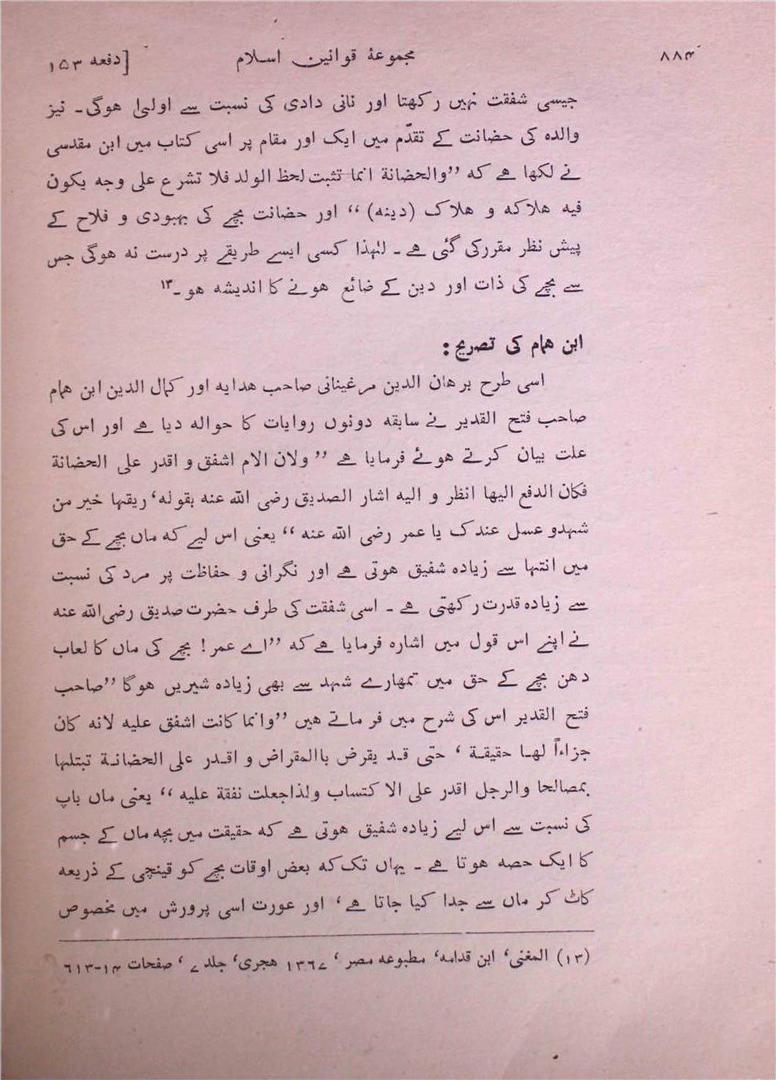 ۸۸۴ مجموعۂ قوانین اسلام [دفعہ ۱۵۳
جیسی شفقت نہیں رکھتا اور نانی دادی کی نسبت سے اولیٰ ہوگی ۔ نیز
والدہ کی حضانت کے تقدّم میں ایک اور مقام پر اسی کتاب میں ابن مقدسی
نے لکھا ہے کہ ’’والحضانة انما تثبت لحظ الولد فلا تشرع علی وجه یکون
فیه هلاکه و هلاک (دینه) ‘‘ اور حضانت بچے کی بہبودی و فلاح کے
پیش نظر مقرر کی گئی ہے ۔ لہٰذا کسی ایسے طریقے پر درست نہ ہوگی جس
سے بچے کی ذات اور دین کے ضائع ہونے کا اندیشہ ہو ۔۱۳
ابن ہمام کی تصریح :
اسی طرح برھان الدین مرغینانی صاحب ھدایہ اور کمال الدین ابن ہمام
صاحب فتح القدیر نے سابقہ دونوں روایات کا حوالہ دیا ہے اور اس کی
علت بیان کرتے ہوئے فرمایا ہے ’’ ولان الام اشفق و اقدر علی الحضانة
فکان الدفع الیها انظر و الیه اشار الصدیق رضی الله عنه بقوله ، ریقها خیر من
شہدو عسل عندک یا عمر رضی الله عنه ‘‘ یعنی اس لیے کہ ماں بچے کے حق
میں انتہا سے زیادہ شفیق ہوتی ہے اور نگرانی و حفاظت پر مرد کی نسبت
سے زیادہ قدرت رکھتی ہے ۔ اسی شفقت کی طرف حضرت صدیق رضی الله عنه
نے اپنے اس قول میں اشارہ فرمایا ہے کہ ’’اے عمر ! بچے کی ماں کا لعاب
دھن بچے کے حق میں تمہارے شہد سے بھی زیادہ شیریں ہوگا ’’صاحب
فتح القدیر اس کی شرح میں فرماتے ہیں ’’وانما کانت اشفق علیه لانه کان
جزاءاً لها حقیقة ، حتی قد یقرض باالمقراض و اقدر علی الحضانة تبتلها
بمصالحا والرجل اقدر علی الا کتساب ولذاجعلت نفقة علیه ‘‘ یعنی ماں باپ
کی نسبت سے اس لیے زیادہ شفیق ہوتی ہے کہ حقیقت میں بچہ ماں کے جسم
کا ایک حصہ ہوتا ہے ۔ یہاں تک کہ بعض اوقات بچے کو قینچی کے ذریعہ
کاٹ کر ماں سے جدا کیا جاتا ہے ، اور عورت اسی پرورش میں مخصوص
(۱۳) المغنی ، ابن قدامہ ، مطبوعہ مصر ، ۱۳۶۷ ہجری ، جلد ۷ ، صفحات ۱۴-۶۱۳